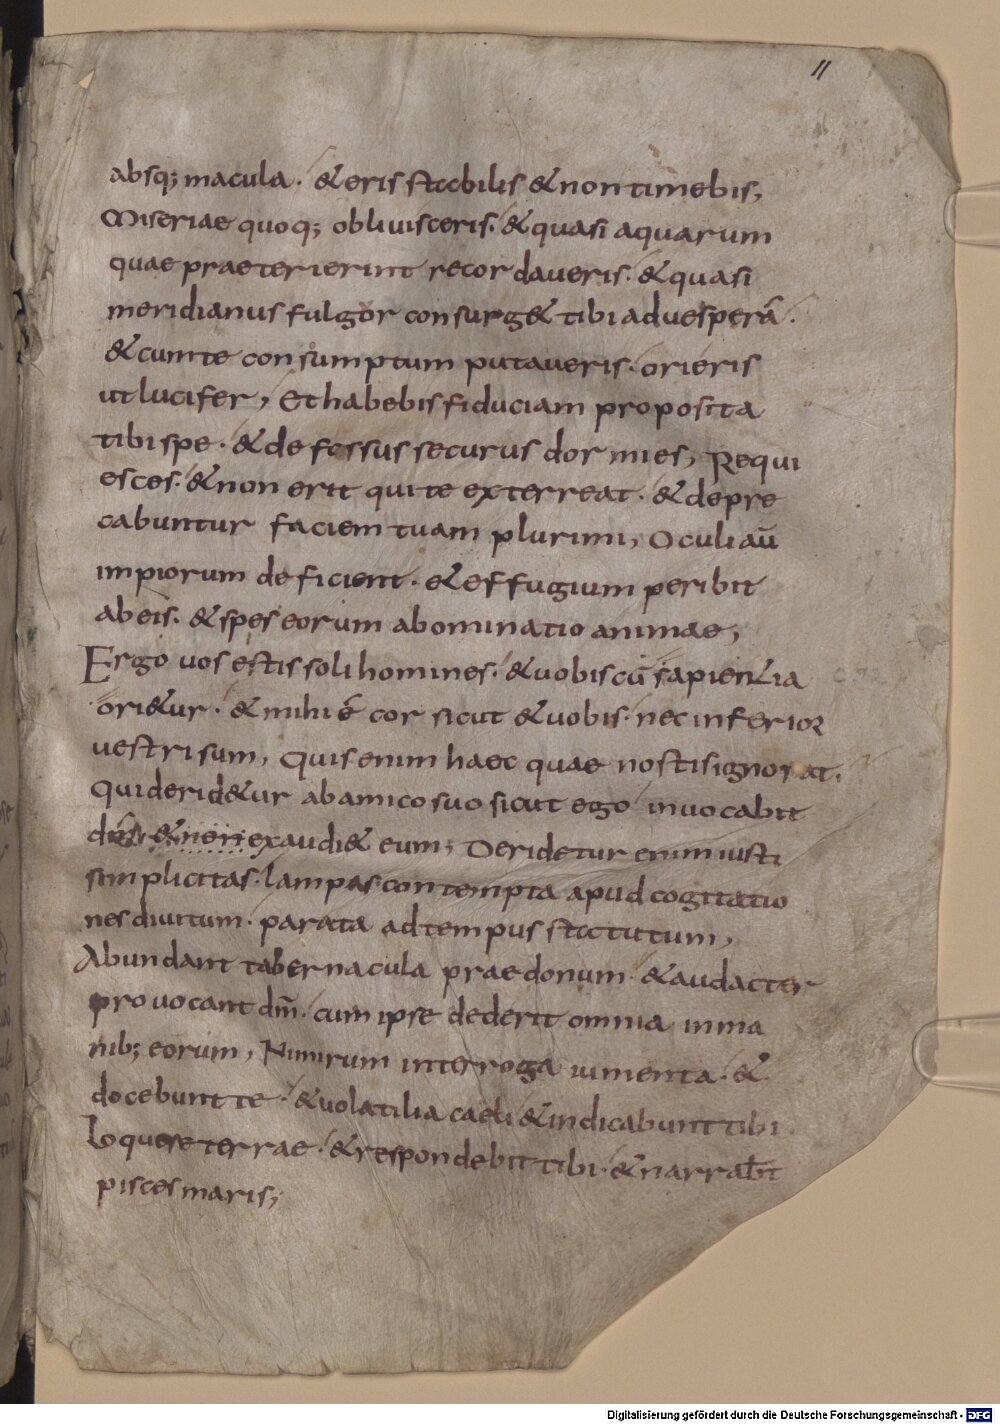 11
absq; macula. & eris stabilis & non timebis;
Miseriae quoq; obliuisceris. & quasi aquarum
quae praeterierint recordaueris. & quasi
meridianus fulgor consurg& tibi ad uesperā.
& cum te consumptum putaueris. orieris
ut lucifer, Et habebis fiduciam proposita
tibi spe. & defossus securus dormies, Requi
esces. & non erit qui te exterreat. & depre
cabuntur faciem tuam plurimi, Oculi aū
impiorum deficient. & effugium peribit
ab eis. & spes eorum abominatio animae,
Ergo uos estis soli homines. & uobiscū sapientia
ori&ur. & mihi ē cor sicut & uobis. nec inferior
uestri sum, Quis enim haec quae nostis ignorat.
Qui derid&ur ab amico suo sicut ego inuocabit
& non exaudi& eum; Deridetur enim iusti
simplicitas. lampas contempta apud cogitatio
nes diuitum. parata ad tempus statutum,
Abundant tabernacula praedonum. & audacter
prouocant dm̄. cum ipse dederit omnia in ma
nib; eorum, Nimirum interroga iumenta. &
docebunt te. & uolatilia caeli & indicabunt tibi.
Loquere terrae. & respondebit tibi. & narrab̄t
pisces maris;
Digitalisierung gefördert durch die Deutsche Forschungsgemeinschaft - DFG